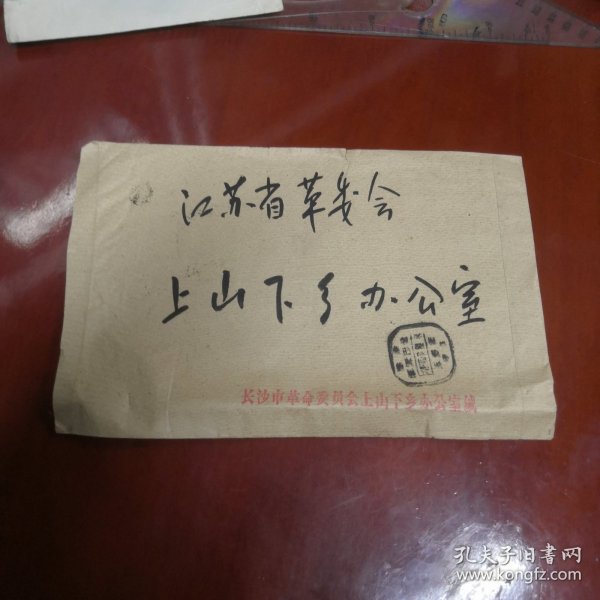 江苏省革委会
上山下乡办公室
长沙市革命委员会上山下乡办公室缄
孔夫子旧书网
www.kongfz.com